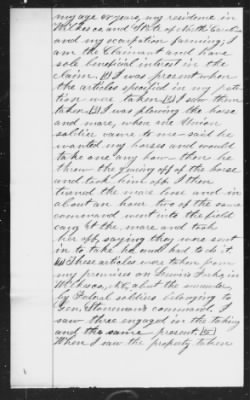 my age years, my residence in
Wilkes co, and State of North Carolina
and my occupation farming; I
am the Claimant and have
sole beneficial interest in the
claim. [2] I was present when
the articles specified in my peti-
tion were taken [3] I saw them
taken. I was plowing the horse
and mare, when one Union
soldier came to me said he
wanted my horses and would
take one any how then he
threw the gearing off of the horse
and took him off. I then
turned the mare lose and in
about an hour two of the same
command went into the field
caught the mare and took
her off, saying they were sent
in to take her and had to do it.
These articles were taken from
my premises on Lewis's Fork, in
Wilkes co, N.C, about the
by Federal soldiers belonging to
Gen. Stoneman's command. I
saw three engaged in the taking
and the same present. [5]
When I saw the property taken